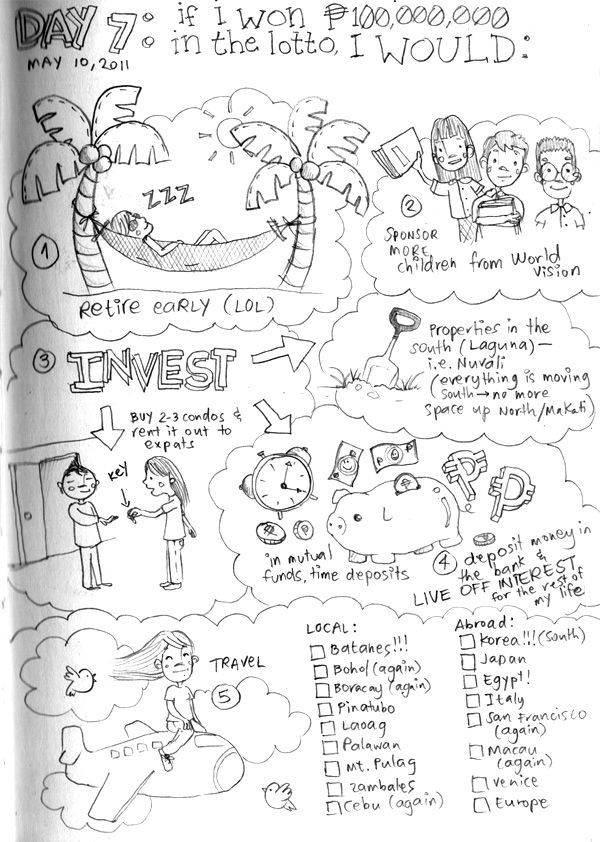 DAY 7:
if i won ₱100,000,000
in the lotto, I WOULD:
MAY 10, 2011
ZZZ
1
Retire early (LOL)
2
SPONSOR
MORE
children from World
vision
3 INVEST
Properties in the
south (Laguna) —
i.e. Nuvali
(everything is moving
south → no more
space up North/Makati)
BUY 2-3 condos &
rent it out to
expats
KEY
in mutual
funds, time deposits
4 deposit money in
the bank &
LIVE OFF INTEREST
for the rest of
my life
TRAVEL
5
LOCAL:
Batanes!!!
Bohol (again)
Boracay (again)
Pinatubo
Laoag
Palawan
Mt. Pulag
Zambales
Cebu (again)
Abroad:
Korea!!! (South)
Japan
Egypt!
Italy
San Francisco
(again)
Macau
(again)
Venice
Europe